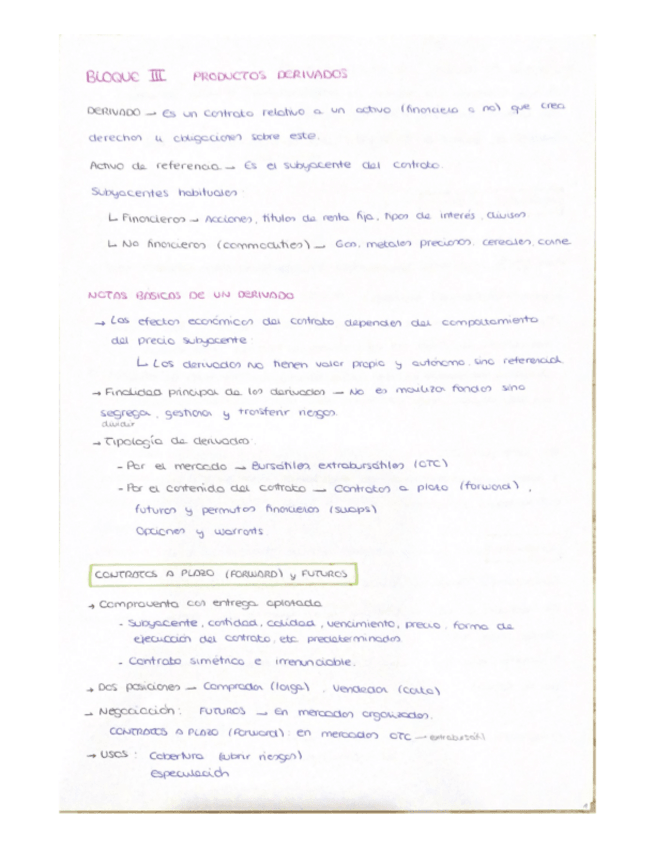 BLOQUE III PRODUCTOS DERIVADOS
DERIVADO → Es un contrato relativo a un activo (financiero o no) que crea
derechos u obligaciones sobre este.
Activo de referencia → Es el subyacente del contrato.
Subyacentes habituales:
↳ Financieros → Acciones, títulos de renta fija, tipos de interés, divisas.
↳ No financieros (commodities) → Gas, metales preciosos, cereales, carne.
NOTAS BÁSICAS DE UN DERIVADO
→ Los efectos económicos del contrato dependen del comportamiento
del precio subyacente:
↳ Los derivados no tienen valor propio y autónomo, sino referencial.
→ Finalidad principal de los derivados → No es movilizar fondos sino
segregar, gestionar y transferir riesgos.
dividir
→ Tipología de derivados:
- Por el mercado → Bursátiles extrabursátiles (OTC)
- Por el contenido del contrato → Contratos a plazo (forward),
futuros y permutas financieras (swaps)
Opciones y warrants
CONTRATOS A PLAZO (FORWARD) y FUTUROS
→ Compraventa con entrega aplazada
- Subyacente, cantidad, calidad, vencimiento, precio, forma de
ejecución del contrato, etc predeterminados.
- Contrato simétrico e irrenunciable.
→ Dos posiciones → Comprador (larga), Vendedor (corta)
→ Negociación: FUTUROS → En mercados organizados.
CONTRATOS A PLAZO (Forward): en mercados OTC → extrabursátil
→ USOS: Cobertura (cubrir riesgos)
Especulación